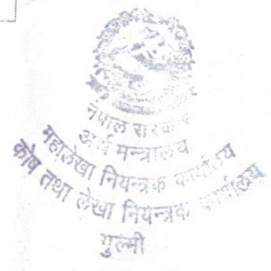 नेपाल सरकार
अर्थ मन्त्रालय
महालेखा नियन्त्रक कार्यालय
कोष तथा लेखा नियन्त्रक कार्यालय
गुल्मी